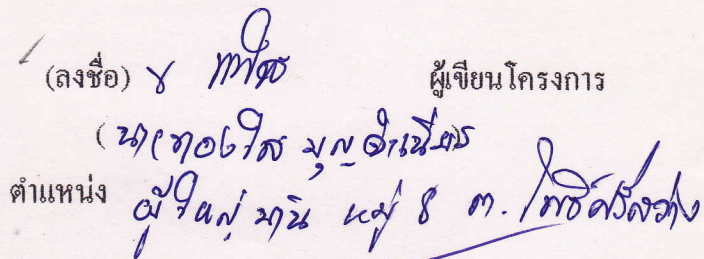 (ลงชื่อ) ผู้เขียนโครงการ
(นายทองใส บุญจำเนียร)
ตำแหน่ง ผู้ใหญ่บ้าน หมู่ 8 ต. โพธิ์ศรีสว่าง